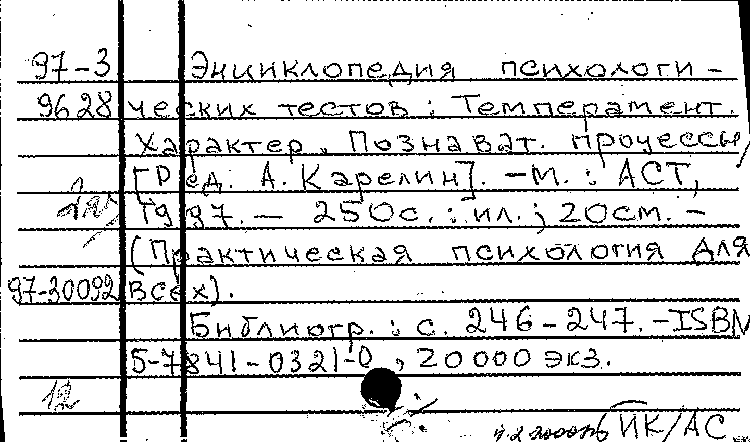 97-3 Энциклопедия психологи-
9628 ческих тестов : Темперамент.
Характер. Познават. процессы/
[Ред. А. Карелин]. -М. : АСТ,
1997. — 250с. : ил. ; 20см. -
(Практическая психология для
97-30092 всех).
Библиогр. : с. 246-247. -ISBN
5-7841-0321-0 , 20000 экз.
12
ИК/АС